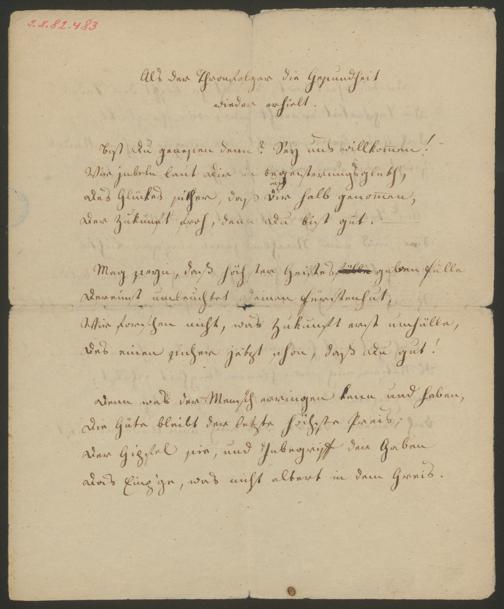 2.8.82.483
Als der Thronfolger die Gesundheit
wieder erhielt.
Bist du genesen denn? Sey uns willkommen!
Wir jubeln laut dir in begeisterungsgluth,
Des Glückes sicher, das dir halb genommen,
Der Zukunft froh, denn Du bist gut.
Mag seyn, daß höchster Geistesgaben Fülle
Dereinst umleuchtet deinen Fürstenhut,
Wir forschen nicht, was Zukunft erst umhülle,
Des einen sicher jetzt schon, daß Du gut!
Denn was der Mensch erringen kann und haben,
Die Güte bleibt der letzte höchste Preis;
Der Gipfel sie, und Inbegriff der Gaben
Das Einz'ge, was nicht altert in dem Greis.